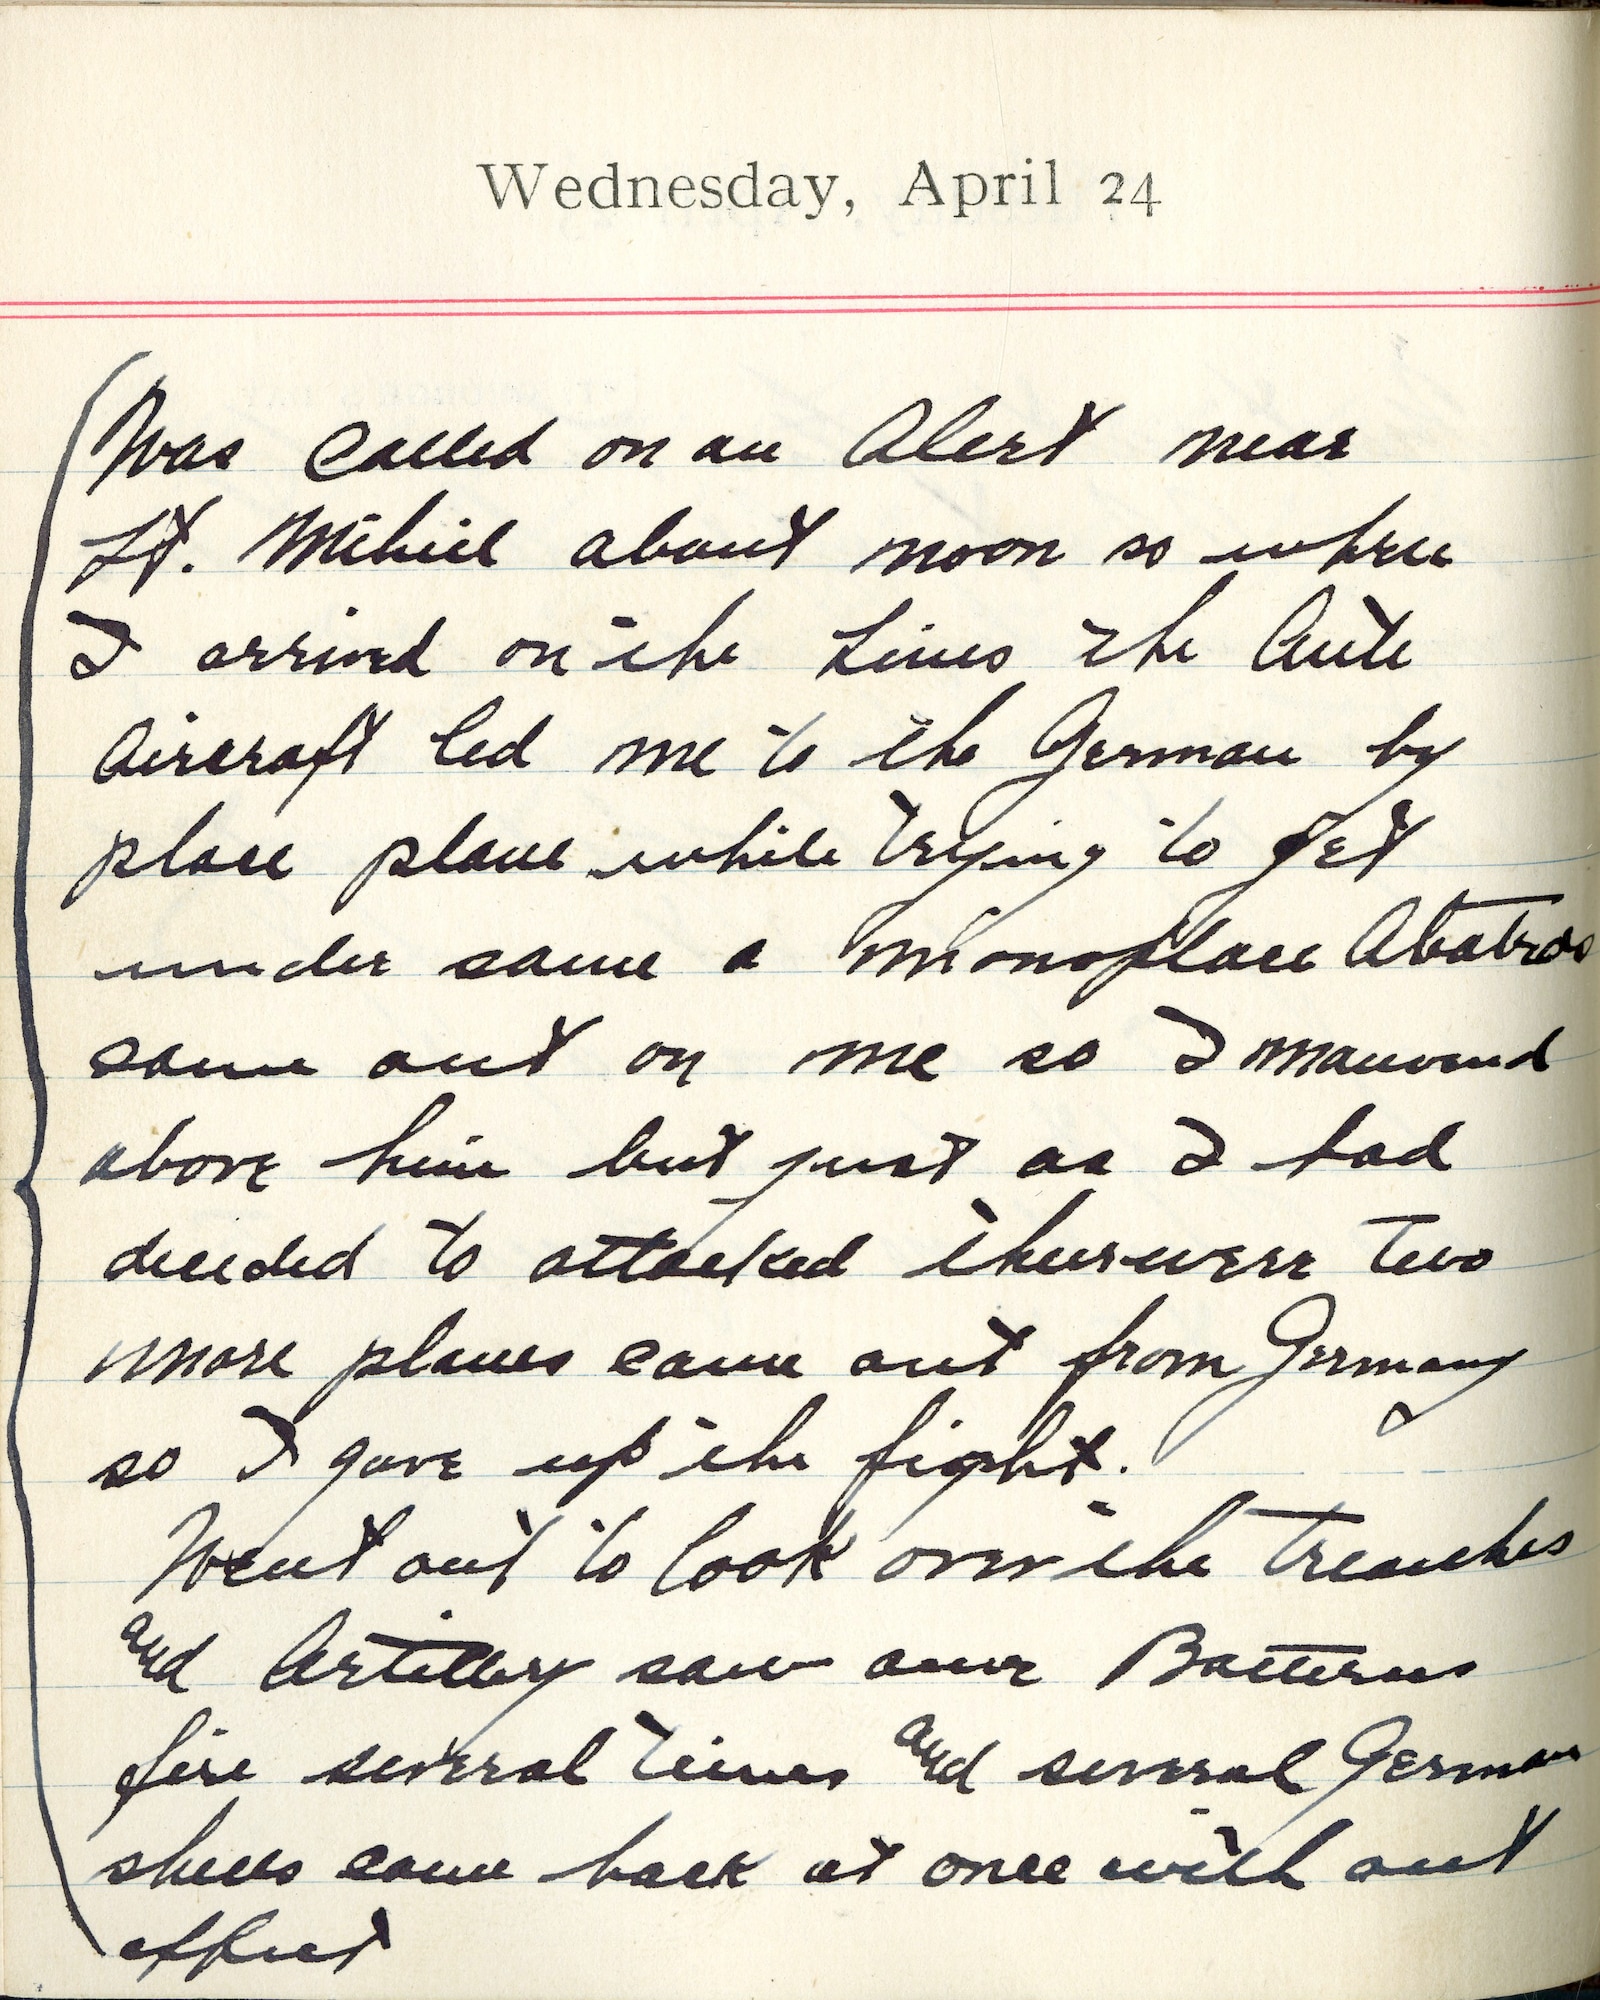 Wednesday, April 24
Was called on an Alert near
St. Mihiel about noon so when
I arrived on the Lines the Ante
Aircraft led me to the German by
place plane while trying to get
under same a monoplace Abatros
came out on me so I manuvered
above him but just as I had
decided to attacked there were two
more planes came out from Germany
so I gave up the fight.
Went out to look over the trenches
and Artillery saw our Batterus
fire several times and several German
shells came back at once with out
effect